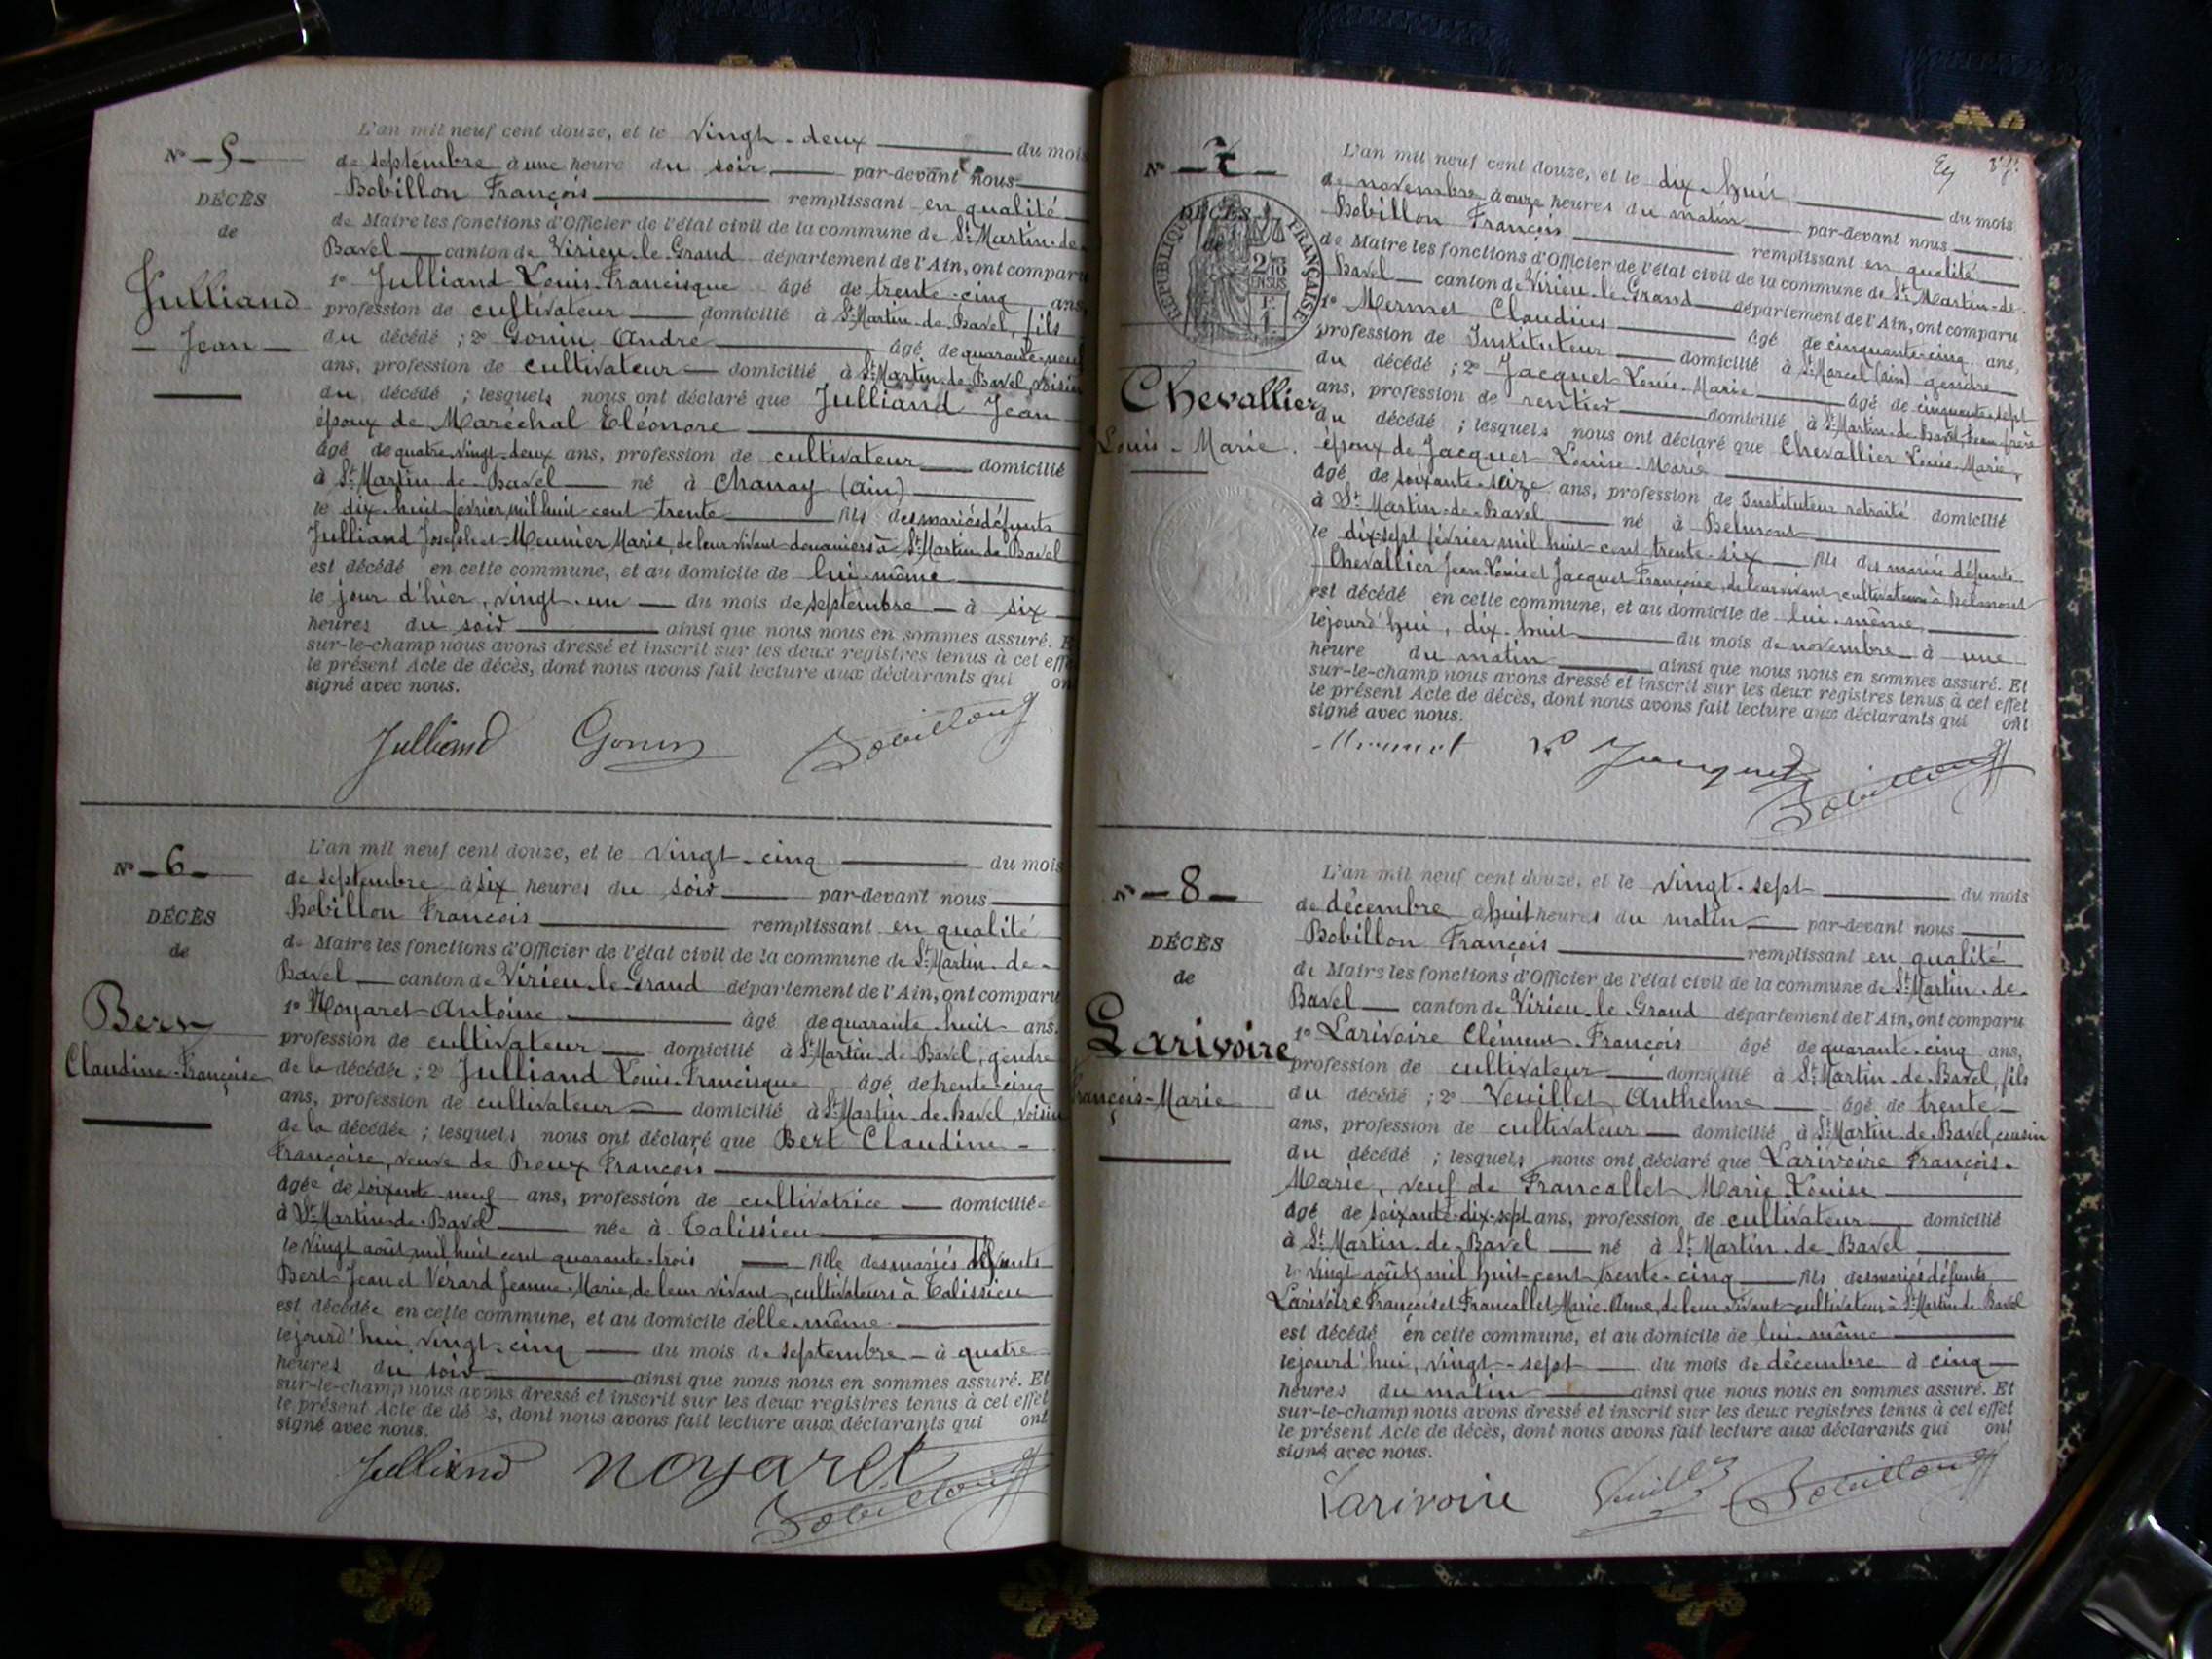 N° 5
DÉCÈS
de
Julliand
Jean
L'an mil neuf cent douze, et le vingt-deux du mois
de septembre à une heure du soir par-devant nous
Bobillon François remplissant en qualité
de Maire les fonctions d'Officier de l'état civil de la commune de St Martin-de-
Bavel canton de Virieu-le-Grand département de l'Ain, ont comparu
1° Julliand Louis-Francisque âgé de trente-cinq ans,
profession de cultivateur domicilié à St Martin-de-Bavel, fils
du décédé ; 2° Gonin André âgé de quarante-neuf
ans, profession de cultivateur domicilié à St Martin-de-Bavel, voisin
du décédé ; lesquels nous ont déclaré que Julliand Jean
époux de Maréchal Eléonore
âgé de quatre-vingt-deux ans, profession de cultivateur domicilié
à St Martin-de-Bavel né à Chanay (Ain)
le dix-huit février mil huit cent trente fils des mariés défunts
Julliand Joseph et Meunier Marie, de leur vivant douaniers à St Martin-de-Bavel
est décédé en cette commune, et au domicile de lui-même
le jour d'hier, vingt-un du mois de septembre à six
heures du soir ainsi que nous nous en sommes assuré. Et
sur-le-champ nous avons dressé et inscrit sur les deux registres tenus à cet effet
le présent Acte de décès, dont nous avons fait lecture aux déclarants qui ont
signé avec nous.
Julliand Gonin Bobillon
N° 6
DÉCÈS
de
Bert
Claudine-Françoise
L'an mil neuf cent douze, et le vingt-cinq du mois
de septembre à six heures du soir par-devant nous
Bobillon François remplissant en qualité
de Maire les fonctions d'Officier de l'état civil de la commune de St Martin-de-
Bavel canton de Virieu-le-Grand département de l'Ain, ont comparu
1° Noyaret Antoine âgé de quarante-huit ans,
profession de cultivateur domicilié à St Martin-de-Bavel, gendre
de la décédée ; 2° Julliand Louis-Francisque âgé de trente-cinq
ans, profession de cultivateur domicilié à St Martin-de-Bavel, voisin
de la décédée ; lesquels nous ont déclaré que Bert Claudine-
Françoise, veuve de Proux François
âgée de soixante-neuf ans, profession de cultivatrice domiciliée
à St Martin-de-Bavel née à Talissieu
le vingt août mil huit cent quarante-trois fille des mariés défunts
Bert Jean et Vérard Jeanne-Marie, de leur vivant, cultivateurs à Talissieu
est décédée en cette commune, et au domicile d'elle-même
lejourd'hui vingt-cinq du mois de septembre à quatre
heures du soir ainsi que nous nous en sommes assuré. Et
sur-le-champ nous avons dressé et inscrit sur les deux registres tenus à cet effet
le présent Acte de décès, dont nous avons fait lecture aux déclarants qui ont
signé avec nous.
Julliand noyaret
Bobillon
N° 7
DÉCÈS
de
RÉPUBLIQUE FRANÇAISE
Chevallier
Louis-Marie
L'an mil neuf cent douze, et le dix-huit du mois
de novembre à onze heures du matin par-devant nous
Bobillon François remplissant en qualité
de Maire les fonctions d'Officier de l'état civil de la commune de St Martin-de-
Bavel canton de Virieu-le-Grand département de l'Ain, ont comparu
1° Mermet Claudius âgé de cinquante-cinq ans,
profession de Instituteur domicilié à St Marcel (Ain) gendre
du décédé ; 2° Jacquet Louis-Marie âgé de cinquante-sept
ans, profession de rentier domicilié à St Martin-de-Bavel, beau-frère
du décédé ; lesquels nous ont déclaré que Chevallier Louis-Marie,
époux de Jacquet Louise-Marie
âgé de soixante-seize ans, profession de Instituteur retraité domicilié
à St Martin-de-Bavel né à Belmont
le dix-sept février mil huit cent trente-six fils des mariés défunts
Chevallier Jean-Louis et Jacquet Françoise, de leur vivant cultivateurs à Belmont
est décédé en cette commune, et au domicile de lui-même,
lejourd'hui, dix-huit du mois de novembre à une
heure du matin ainsi que nous nous en sommes assuré. Et
sur-le-champ nous avons dressé et inscrit sur les deux registres tenus à cet effet
le présent Acte de décès, dont nous avons fait lecture aux déclarants qui ont
signé avec nous.
Mermet Jacquet
Bobillon
N° 8
DÉCÈS
de
Larivoire
François-Marie
L'an mil neuf cent douze, et le vingt-sept du mois
de décembre à huit heures du matin par-devant nous
Bobillon François remplissant en qualité
de Maire les fonctions d'Officier de l'état civil de la commune de St Martin-de-
Bavel canton de Virieu-le-Grand département de l'Ain, ont comparu
1° Larivoire Clément-François âgé de quarante-cinq ans,
profession de cultivateur domicilié à St Martin-de-Bavel, fils
du décédé ; 2° Veuillet Anthelme âgé de trente
ans, profession de cultivateur domicilié à St Martin-de-Bavel, cousin
du décédé ; lesquels nous ont déclaré que Larivoire François-
Marie, veuf de Francallet Marie-Louise
âgé de soixante-dix-sept ans, profession de cultivateur domicilié
à St Martin-de-Bavel né à St Martin-de-Bavel
le vingt août mil huit-cent trente-cinq fils des mariés défunts
Larivoire François et Francallet Marie-Anne, de leur vivant cultivateurs à St Martin-de-Bavel
est décédé en cette commune, et au domicile de lui-même
lejourd'hui, vingt-sept du mois de décembre à cinq
heures du matin ainsi que nous nous en sommes assuré. Et
sur-le-champ nous avons dressé et inscrit sur les deux registres tenus à cet effet
le présent Acte de décès, dont nous avons fait lecture aux déclarants qui ont
signé avec nous.
Larivoire Bobillon